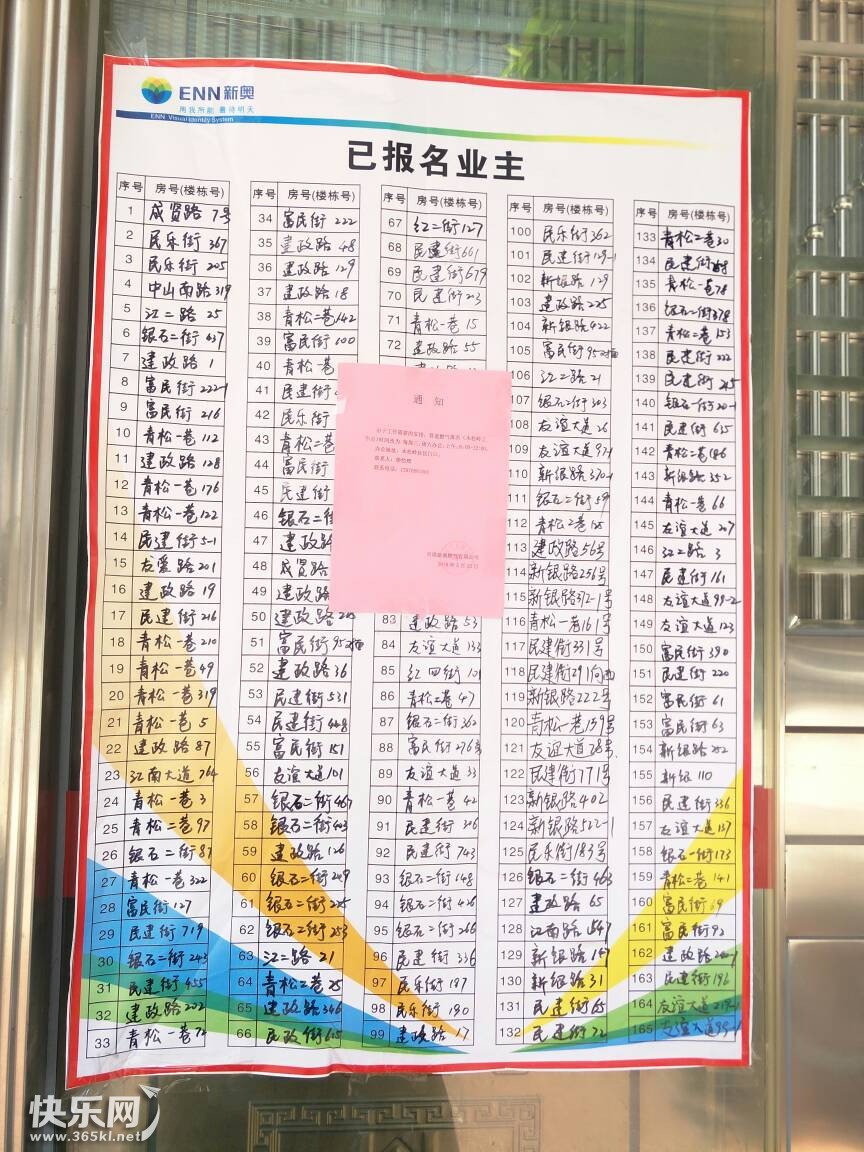 ENN新奥
用我所能 善待明天
ENN Visual Identity System
已报名业主
序号 房号(楼栋号)
1 成贤路 7号
2 民乐街 367
3 民乐街 205
4 中山南路 319
5 江二路 25
6 银石二街 637
7 建政路 1
8 富民街 222-1
9 富民街 216
10 青松一巷 112
11 建政路 128
12 青松一巷 176
13 青松一巷 122
14 民建街 5-1
15 友爱路 201
16 建政路 19
17 民建街 216
18 青松一巷 210
19 青松一巷 49
20 青松一巷 319
21 青松一巷 5
22 建政路 87
23 江南大道 764
24 青松一巷 3
25 青松二巷 97
26 银石二街 87
27 青松一巷 322
28 富民街 127
29 民建街 719
30 银石二街 243
31 民建街 455
32 建政路 202
33 青松一巷 72
序号 房号(楼栋号)
34 富民街 222
35 建政路 48
36 建政路 129
37 建政路 18
38 青松二巷 142
39 富民街 100
40 青松一巷
41 民建街
42 民乐街
43 青松二巷
44 富民街
45 民建街
46 银石二街
47 建政路
48 成贤路
49 建政路
50 建政路
51 富民街 95对面
52 建政路 36
53 民建街 531
54 民建街 448
55 富民街 151
56 友谊大道 101
57 银石二街 467
58 银石二街 443
59 建政路 126
60 银石二街 249
61 银石二街 225
62 银石二街 253
63 江二路 21
64 青松二巷 25
65 建政路 346
66 民政街 605
序号 房号(楼栋号)
67 红二街 127
68 民建街 661
69 民建街 679
70 民建街 203
71 青松一巷 15
72 建政路 55
通知
83 建政路 53
84 友谊大道 133
85 红四街 101
86 青松二巷 47
87 银石二街 362
88 富民街 276号
89 友谊大道 33
90 青松一巷 42
91 民建街 306
92 民建街 743
93 银石二街 148
94 银石二街 426
95 银石二街 266
96 民建街 336
97 民乐街 187
98 民乐街 190
99 建政路 17
序号 房号(楼栋号)
100 民乐街 362
101 民建街 129-1
102 新银路 129
103 建政路 225
104 新银路 422
105 富民街 95对面
106 江二路 21
107 银石二街 303
108 友谊大道 26
109 友谊大道 97-1
110 新银路 370-1
111 银石二街 59
112 青松二巷 125
113 建政路 56号
114 新银路 256号
115 新银路 312-1号
116 青松一巷 161号
117 民建街 331号
118 民建街 291向西
119 新银路 222号
120 青松一巷 159号
121 友谊大道 28号
122 民建街 771号
123 新银路 402
124 新银路 522-1
125 民乐街 183号
126 银石二街 463
127 建政路 65
128 江南路 547
129 新银路 147
130 新银路 31
131 民建街 65
132 民建街 72
序号 房号(楼栋号)
133 青松二巷 30
134 民建街
135 青松一巷 78
136 银石一街 378
137 青松二巷 153
138 民建街 222
139 民建街 245
140 银石一街 20-1
141 民建街 635
142 青松二巷 186
143 新银路 352
144 青松一巷 66
145 友谊大道 207
146 江二路 3
147 民建街 161
148 友谊大道 99-2
149 友谊大道 123
150 富民街 390
151 民建街 220
152 富民街 61
153 富民街 63
154 新银路 252
155 新银 110
156 民建街 336
157 友谊大道 137
158 银石一街 173
159 青松二巷 141
160 富民街 69
161 富民街 92
162 建政路
163 民建街 196
164 友谊大道 219-1
165 友谊大道 99-1
快乐网
www.365kl.net